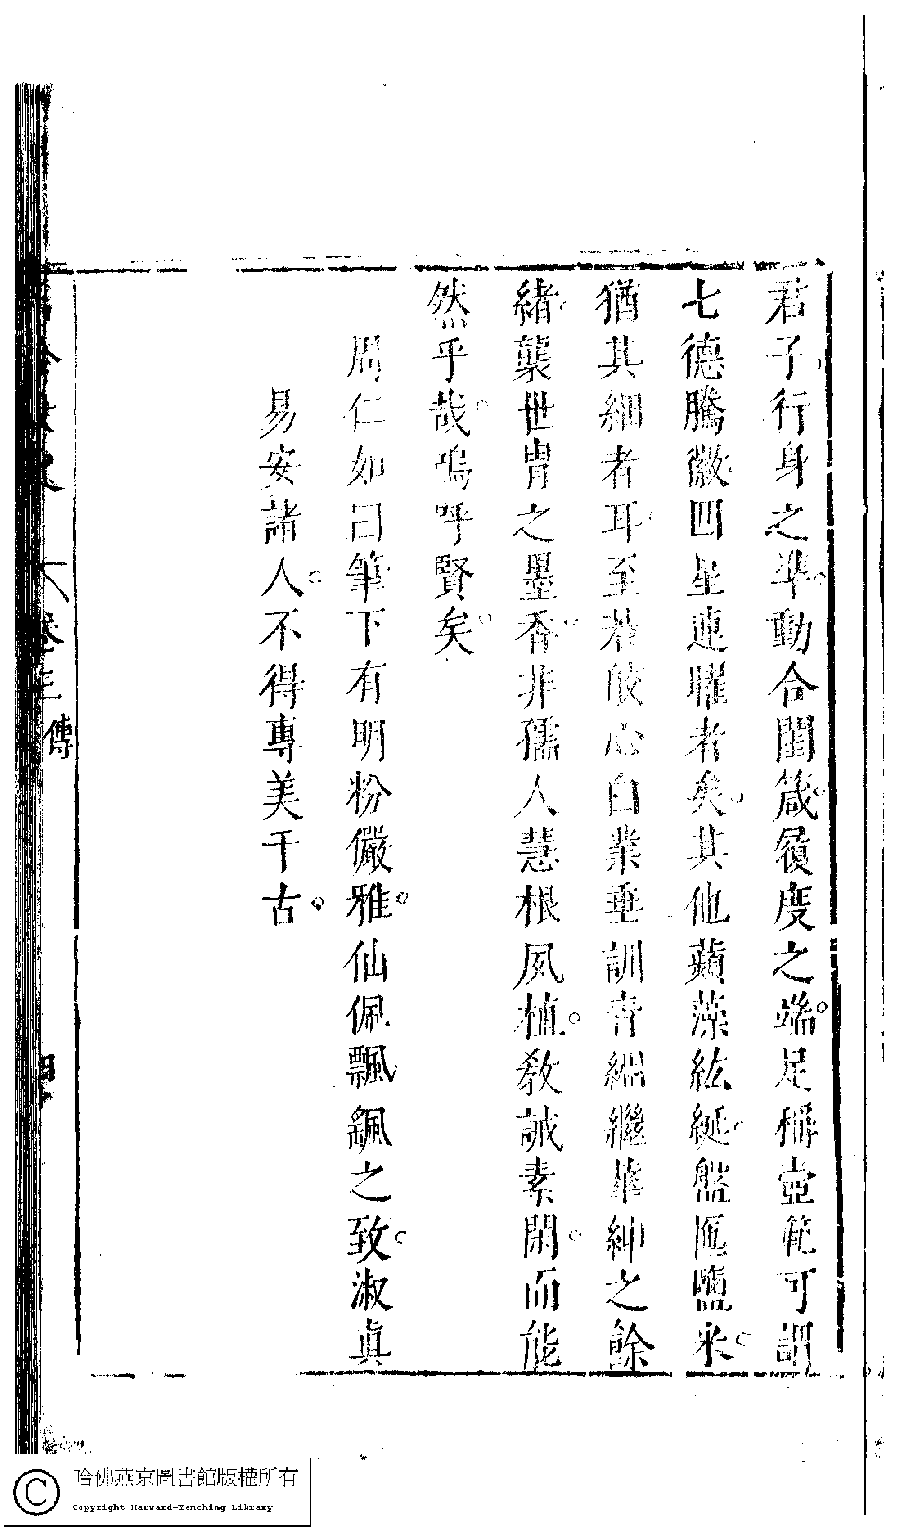 君子行身之準動合閨箴履度之端足稱壼範可謂
七德騰徽四星連曜者矣其他蘋藻紘綖盤匜鹽米
猶其細者耳至若皈心白業垂訓青緗繼華紳之餘
緒襲世胄之墨香非孺人慧根夙植教誡素閑而能
然乎哉嗚呼賢矣
周仁如曰筆下有明粉儼雅仙佩飄颻之致淑真
易安諸人不得專美千古
卷三
傳
哈佛燕京圖書館版權所有
Copyright Harvard-Yenching Library